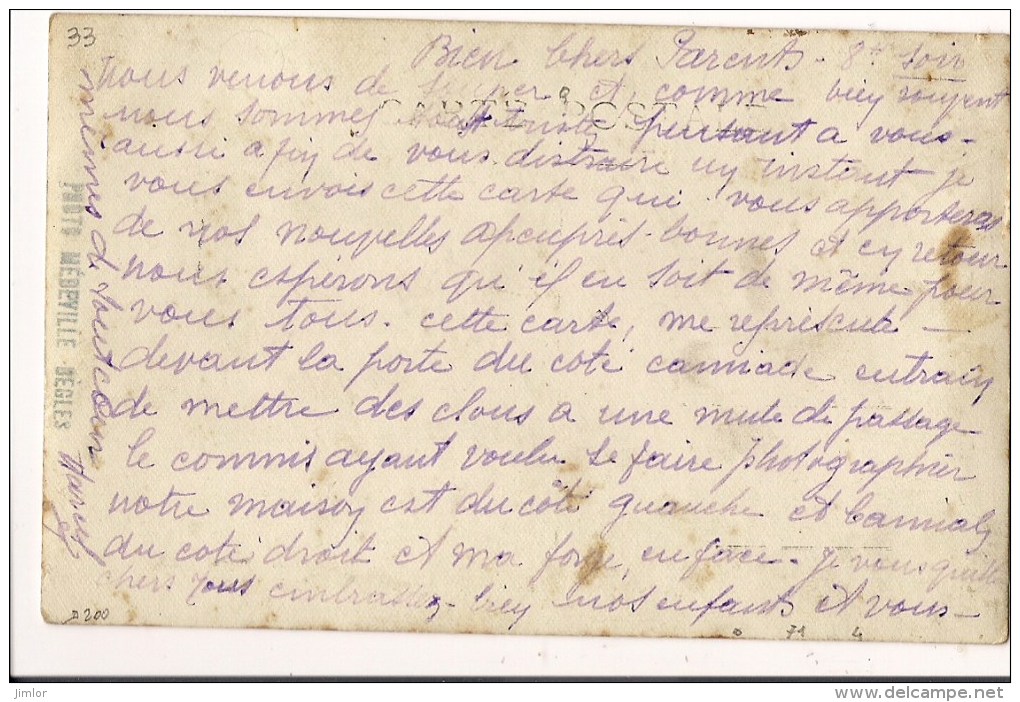 33
Bien Chers Parents. 8h soir
nous venons de souper et comme bien souvent
CARTE POSTALE
nous sommes tout triste pensant a vous-
aussi afin de vous distraire un instant je
vous envois cette carte qui vous apporteras
de nos nouvelles apeuprès bonnes et en retour
nous espérons qu'il en soit de même pour
vous tous. cette carte, me représente
devant la porte du coté cannade entrain
de mettre des clous a une mule de passage
le commis ayant voulu se faire photographier
notre maison est du côté gauche et
du coté droit et ma forge, en face. je vous quitte
chers tous embrassez bien nos enfants et vous-
mêmes de tout cœur Marcel
PHOTO MÉDEVILLE - BÈGLES
D200
71 4
jimlor
www.delcampe.net